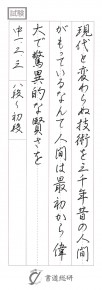 試験
現代と変わらぬ技術を三千年昔の人間
がもっているなんて人間は最初から偉
大で驚異的な賢さを
中一、二、三 八段〜初段
書道総研